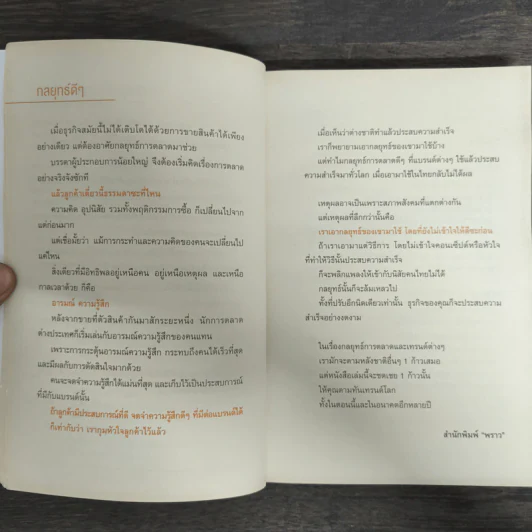 กลยุทธ์ดีๆ
เมื่อธุรกิจสมัยนี้ไม่ได้เติบโตได้ด้วยการขายสินค้าได้เพียง
อย่างเดียว แต่ต้องอาศัยกลยุทธ์การตลาดมาช่วย
บรรดาผู้ประกอบการน้อยใหญ่ จึงต้องเริ่มคิดเรื่องการตลาด
อย่างจริงจังซักที
แล้วลูกค้าเดี๋ยวนี้ธรรมดาซะที่ไหน
ความคิด อุปนิสัย รวมทั้งพฤติกรรมการซื้อ ก็เปลี่ยนไปจาก
แต่ก่อนมาก
แต่เชื่อมั้ยว่า แม้การกระทำและความคิดของคนจะเปลี่ยนไป
แค่ไหน
สิ่งเดียวที่มีอิทธิพลอยู่เหนือคน อยู่เหนือเหตุผล และเหนือ
กาลเวลาด้วย ก็คือ
อารมณ์ ความรู้สึก
หลังจากขายที่ตัวสินค้ากันมาสักระยะหนึ่ง นักการตลาด
ต่างประเทศก็เริ่มเล่นกับอารมณ์ความรู้สึกของคนแทน
เพราะการกระตุ้นอารมณ์ความรู้สึก กระทบถึงคนได้เร็วที่สุด
และมีผลกับการตัดสินใจมากด้วย
คนจะจดจำความรู้สึกได้แม่นที่สุด และเก็บไว้เป็นประสบการณ์
ที่มีกับแบรนด์นั้น
ถ้าลูกค้ามีประสบการณ์ที่ดี จดจำความรู้สึกดีๆ ที่มีต่อแบรนด์ได้
ก็เท่ากับว่า เรากุมหัวใจลูกค้าไว้แล้ว
เมื่อเห็นว่าต่างชาติทำแล้วประสบความสำเร็จ
เราก็พยายามเอากลยุทธ์ของเขามาใช้บ้าง
แต่ทำไมกลยุทธ์การตลาดดีๆ ที่แบรนด์ต่างๆ ใช้แล้วประสบ
ความสำเร็จมาทั่วโลก เมื่อเอามาใช้ในไทยกลับไม่ได้ผล
เหตุผลอาจเป็นเพราะสภาพสังคมที่แตกต่างกัน
แต่เหตุผลที่ลึกกว่านั้นคือ
เราเอากลยุทธ์ของเขามาใช้ โดยที่ยังไม่เข้าใจได้ดีซะก่อน
ถ้าเราเอามาแค่วิธีการ โดยไม่เข้าใจคอนเซ็ปต์หรือหัวใจ
ที่ทำให้วิธีนั้นประสบความสำเร็จ
ก็จะพลิกแพลงให้เข้ากับนิสัยคนไทยไม่ได้
กลยุทธ์นั้นก็จะล้มเหลวไป
ทั้งที่ปรับอีกนิดเดียวเท่านั้น ธุรกิจของคุณก็จะประสบความ
สำเร็จอย่างงดงาม
ในเรื่องกลยุทธ์การตลาดและเทรนด์ต่างๆ
เรามักจะตามหลังชาติอื่นๆ 1 ก้าวเสมอ
แต่หนังสือเล่มนี้จะชดเชย 1 ก้าวนั้น
ให้คุณตามทันเทรนด์โลก
ทั้งในตอนนี้และในอนาคตอีกหลายปี
สำนักพิมพ์ "พราว"